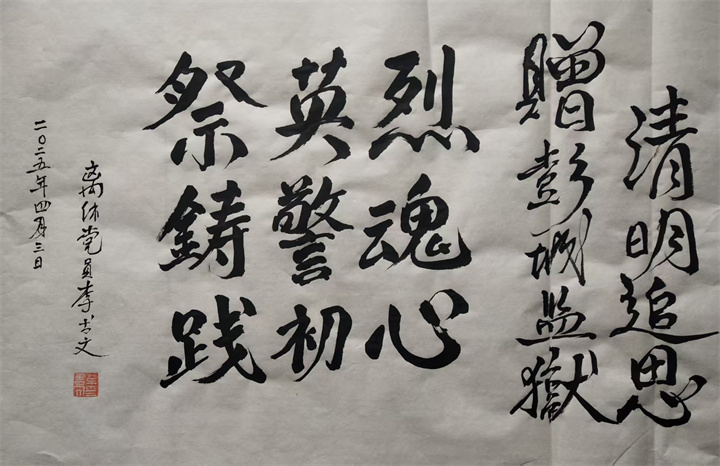 清明追思
贈彭城监獄
祭英烈
铸警魂
践初心
离休党员李书文
二〇二五年四月三日